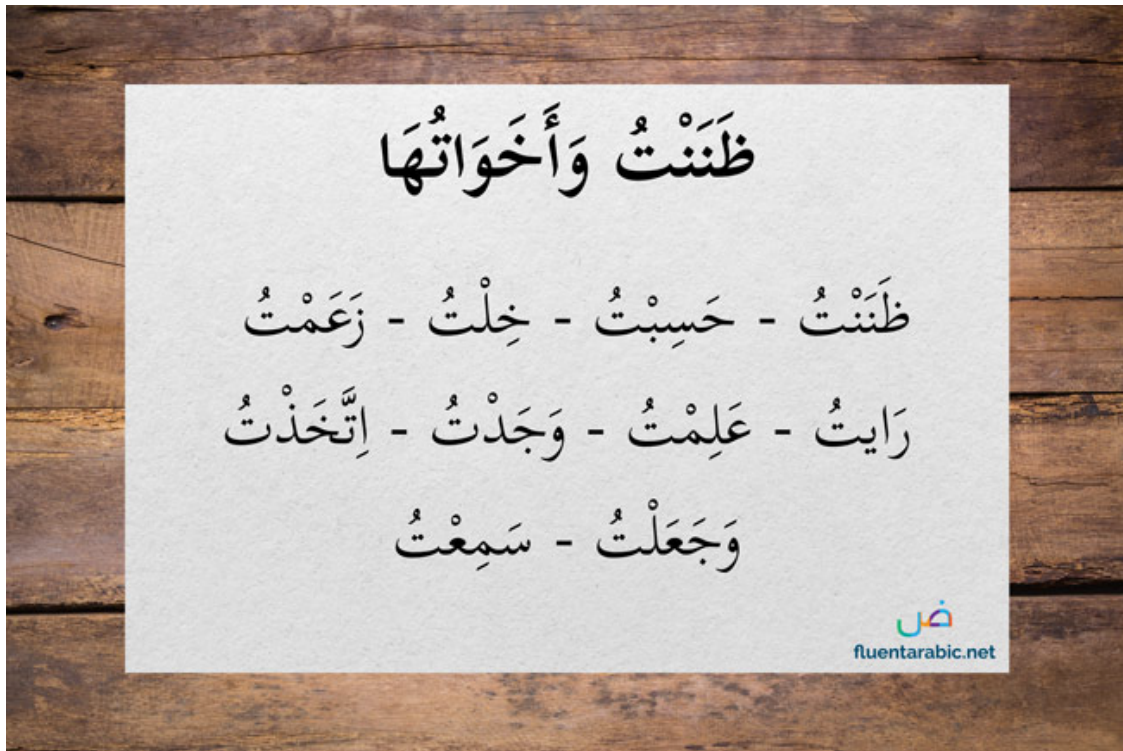 ظَنَنْتُ وَأَخَوَاتُهَا
ظَنَنْتُ - حَسِبْتُ - خِلْتُ - زَعَمْتُ
رَايتُ - عَلِمْتُ - وَجَدْتُ - اِتَّخَذْتُ
وَجَعَلْتُ - سَمِعْتُ
ض
fluentarabic.net